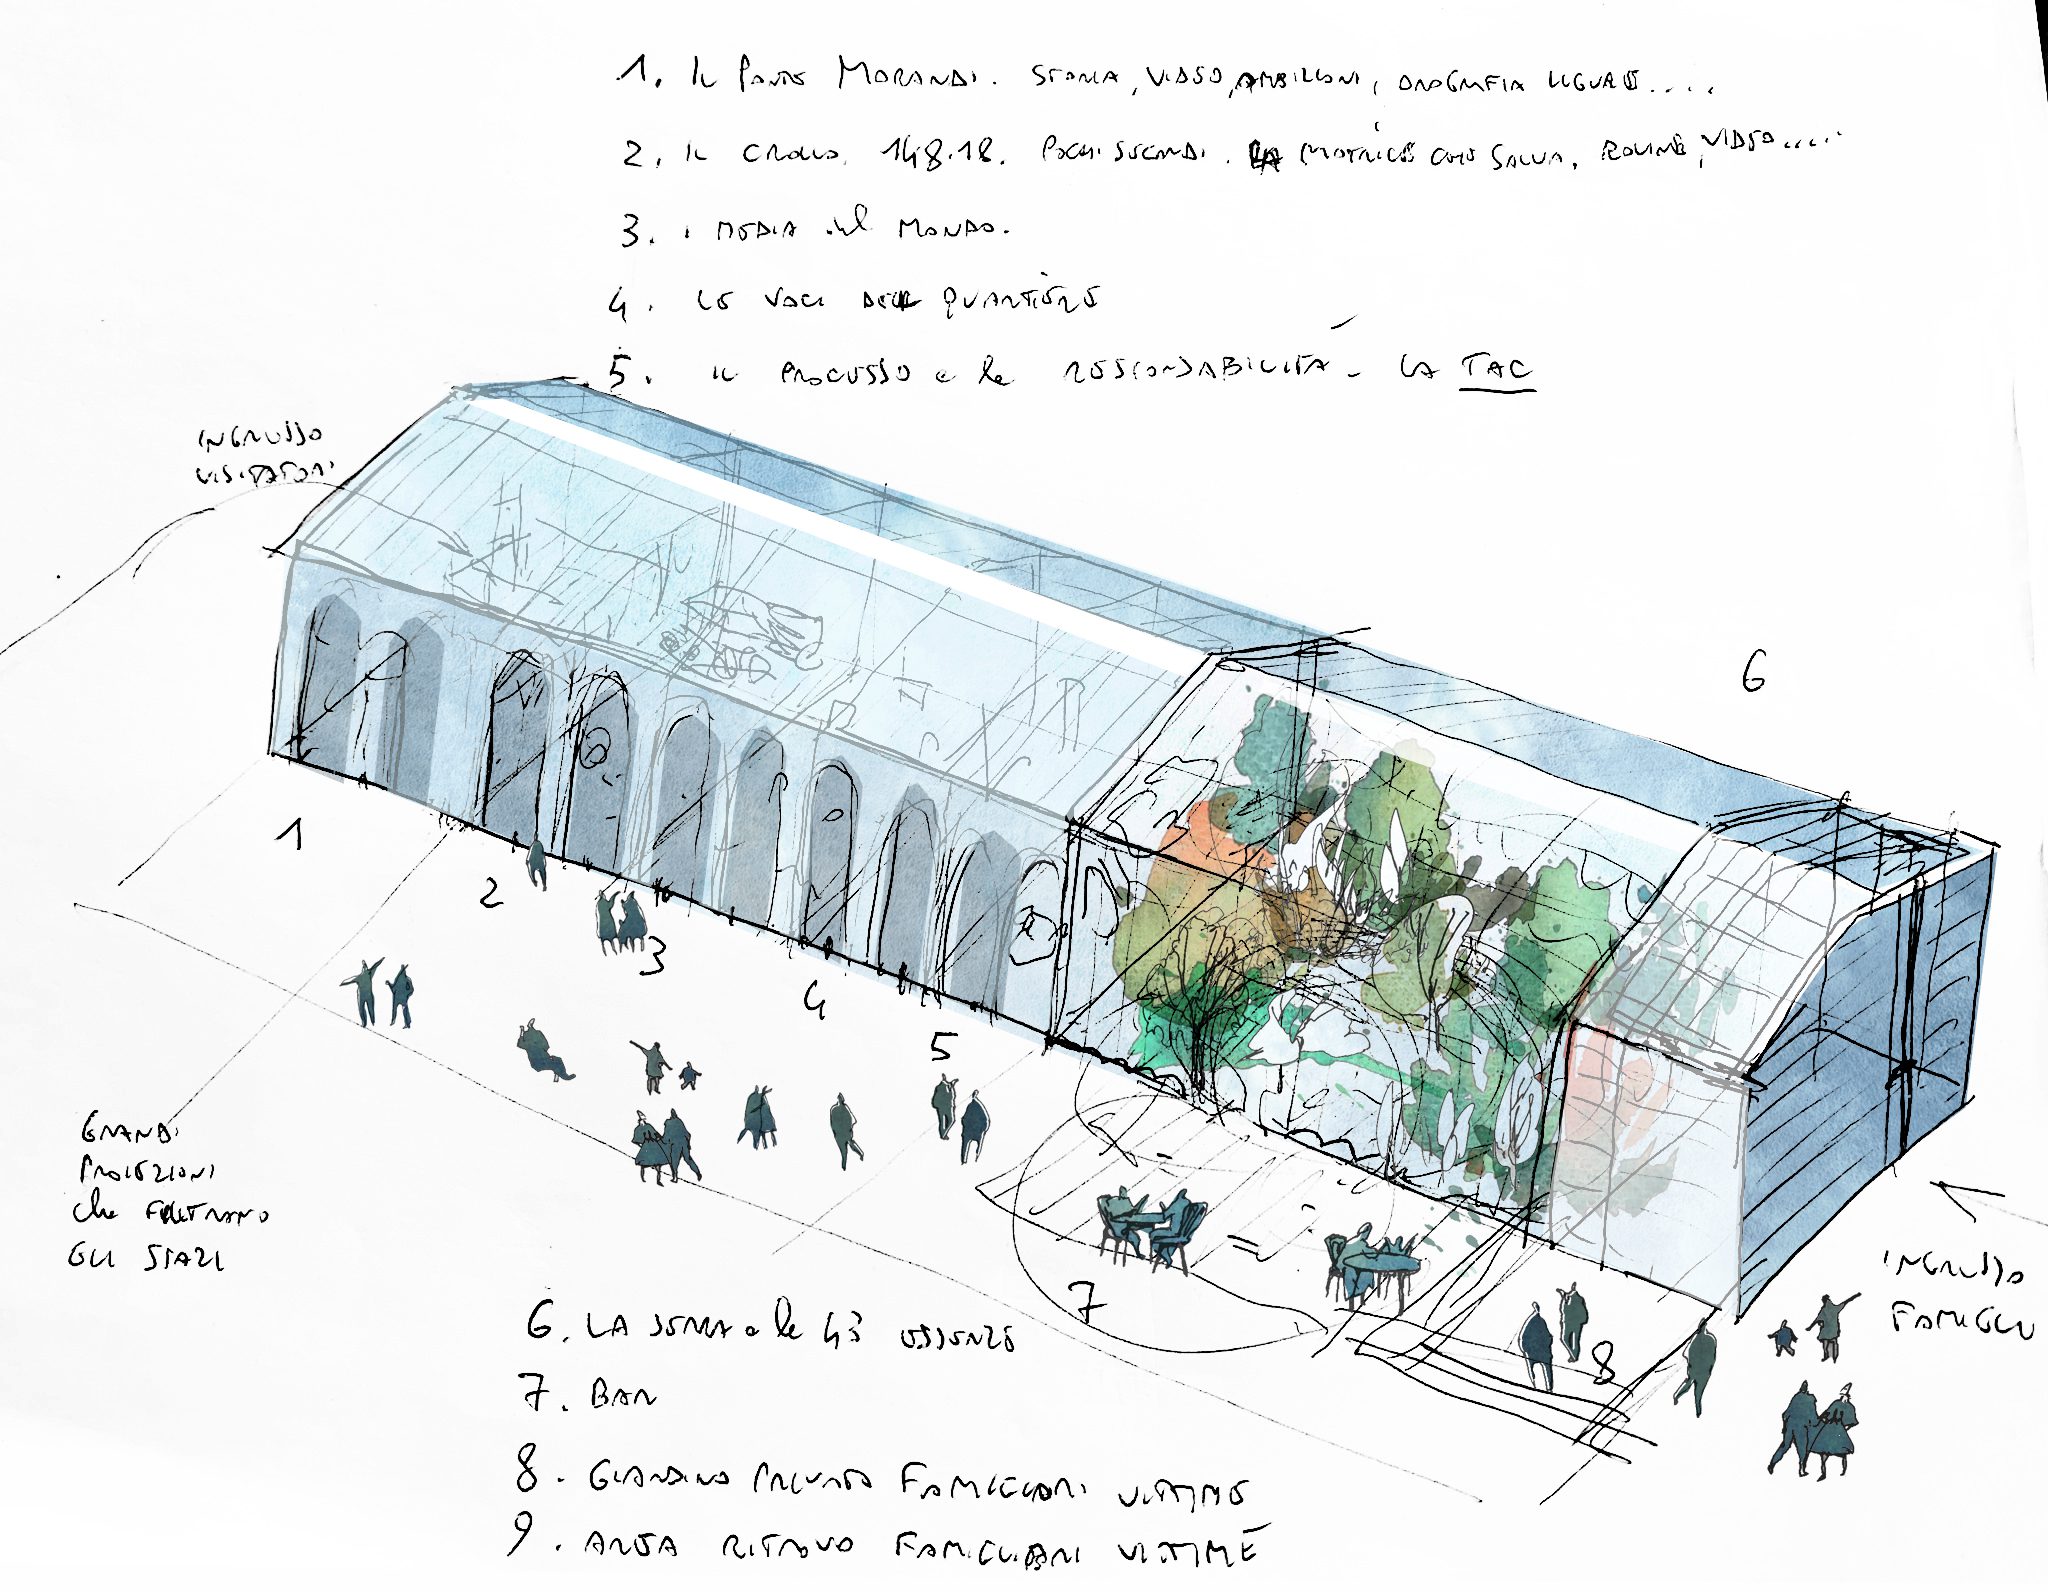 1. IL PONTE MORANDI. STORIA, VIDEO, AMBIZIONI, OROGRAFIA LIGURE.....
2. IL CROLLO. 14.8.18. POCHI SECONDI. LA MOTRICE CHE SALVA, ROVINE, VIDEO.....
3. I MEDIA nel MONDO.
4. LE VOCI DEL QUARTIERE
5. IL PROCESSO e le RESPONSABILITÀ - LA TAC
INGRESSO
VISITATORI
6
1
2
3
4
5
GRANDI
PROIEZIONI
che FILTRANO
GLI SPAZI
INGRESSO
FAMIGLI
7
8
6. LA SERRA e le 43 ESSENZE
7. BAR
8. GIARDINO PRIVATO FAMIGLIARI VITTIME
9. AREA RITROVO FAMIGLIARI VITTIME